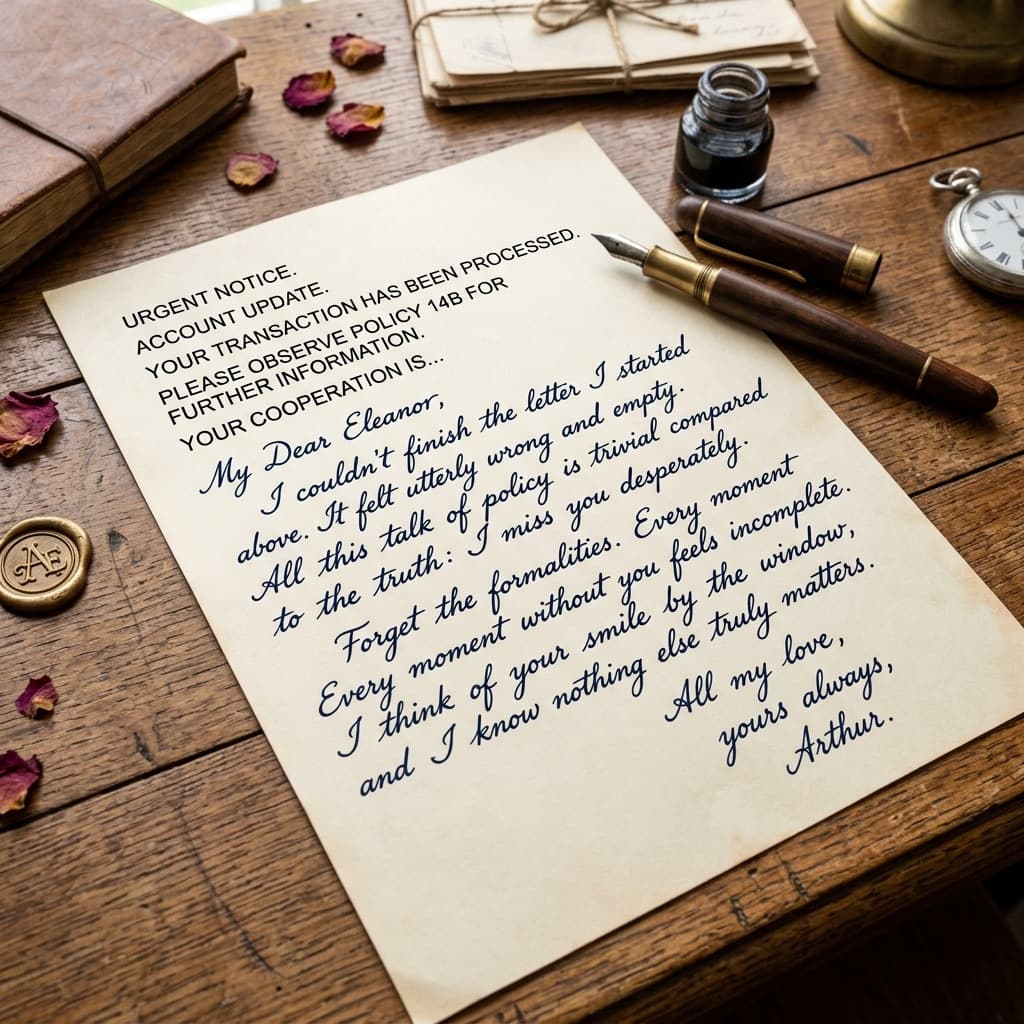 URGENT NOTICE.
ACCOUNT UPDATE.
YOUR TRANSACTION HAS BEEN PROCESSED.
PLEASE OBSERVE POLICY 14B FOR
FURTHER INFORMATION.
YOUR COOPERATION IS...
My Dear Eleanor,
I couldn't finish the letter I started
above. It felt utterly wrong and empty.
All this talk of policy is trivial compared
to the truth: I miss you desperately.
Forget the formalities. Every moment
Every moment without you feels incomplete.
I think of your smile by the window,
and I know nothing else truly matters.
All my love,
yours always,
Arthur.